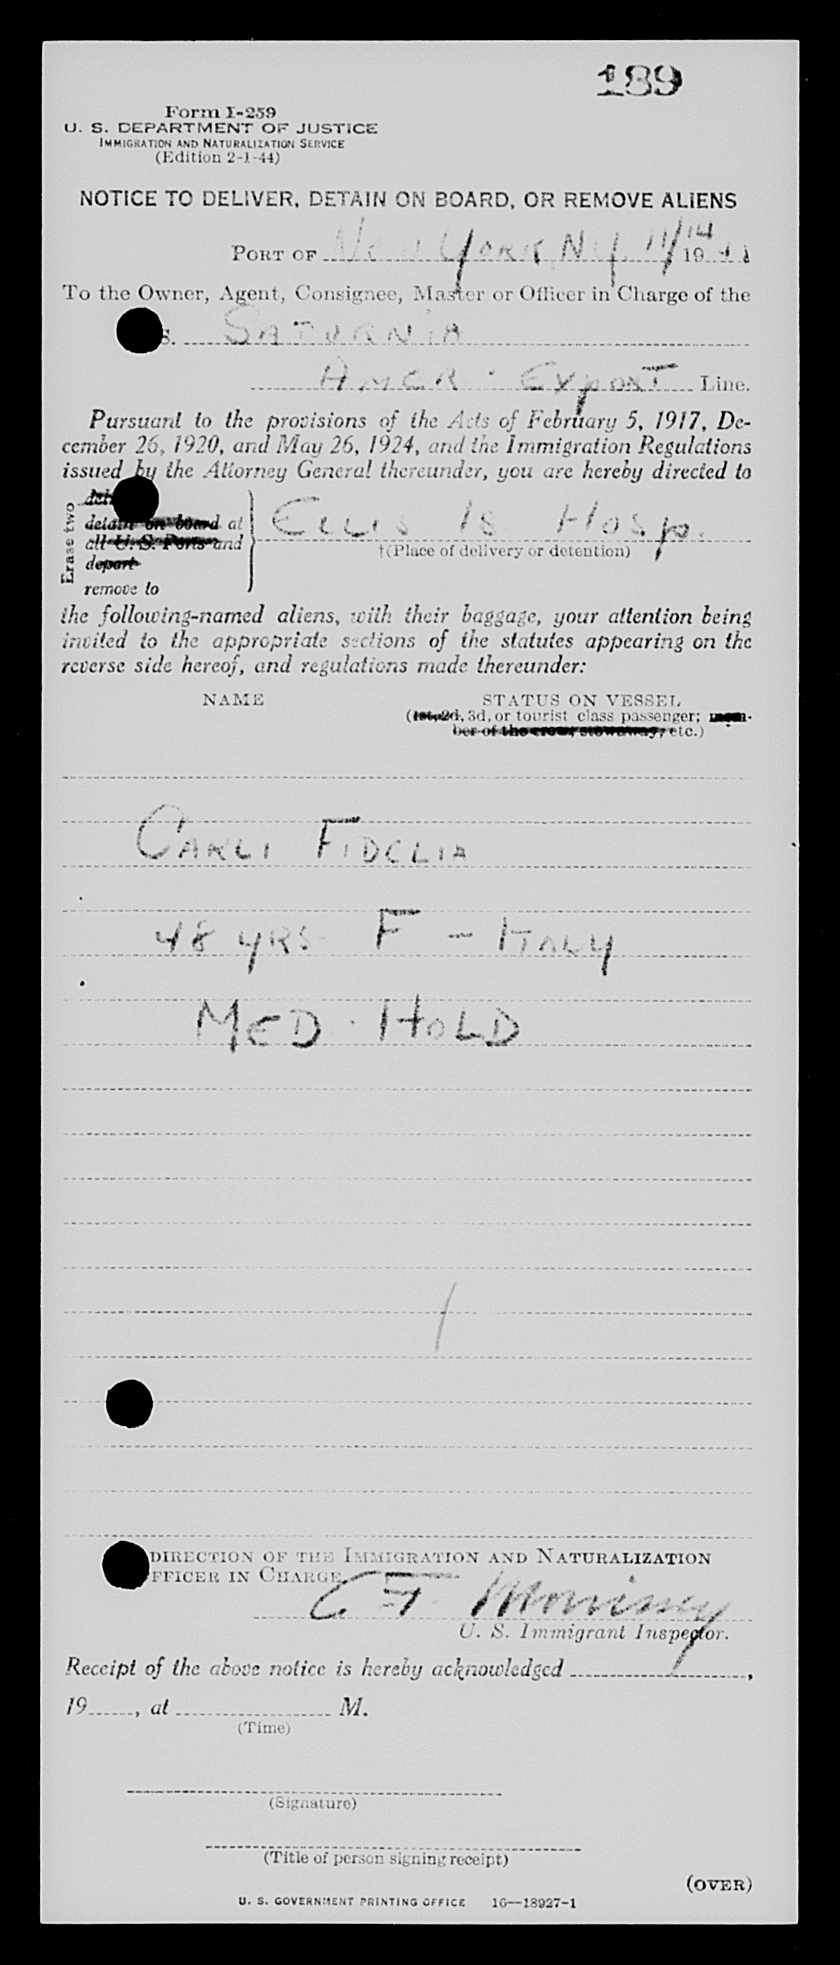 189
Form I-259
U. S. DEPARTMENT OF JUSTICE
IMMIGRATION AND NATURALIZATION SERVICE
(Edition 2-1-44)
NOTICE TO DELIVER, DETAIN ON BOARD, OR REMOVE ALIENS
PORT OF New York, N.Y. 11/14 19
To the Owner, Agent, Consignee, Master or Officer in Charge of the
S. SATURNIA
AMER. Export Line.
Pursuant to the provisions of the Acts of February 5, 1917, De-
cember 26, 1920, and May 26, 1924, and the Immigration Regulations
issued by the Attorney General thereunder, you are hereby directed to
Erase two
detain on board at
all U. S. Ports and
depart
remove to
ELLIS IS HOSP.
†(Place of delivery or detention)
the following-named aliens, with their baggage, your attention being
invited to the appropriate sections of the statutes appearing on the
reverse side hereof, and regulations made thereunder:
NAME STATUS ON VESSEL
(1st, 2d, 3d, or tourist class passenger; mem-
ber of the crew, stowaway, etc.)
CARLI FIDELIA
48 YRS F - ITALY
MED. HOLD
DIRECTION OF THE IMMIGRATION AND NATURALIZATION
FFICER IN CHARGE
C F Morrissey
U. S. Immigrant Inspector.
Receipt of the above notice is hereby acknowledged ,
19 , at M.
(Time)
(Signature)
(Title of person signing receipt)
(OVER)
U. S. GOVERNMENT PRINTING OFFICE 16—18927-1